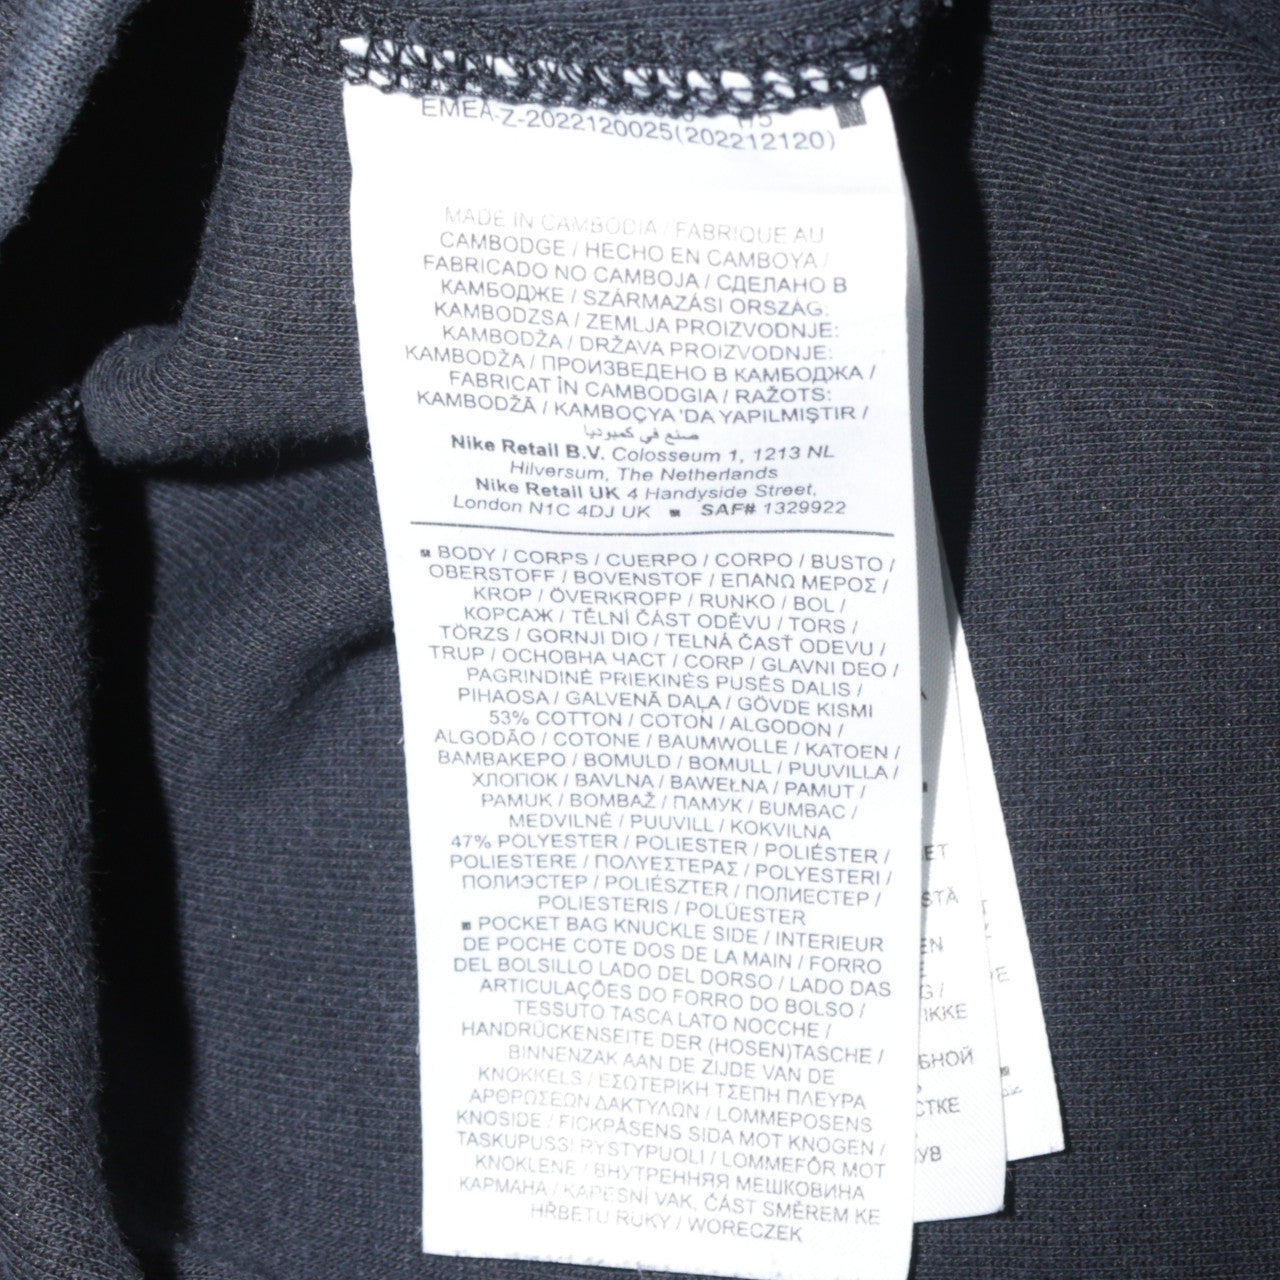 EMEA-Z-2022120025(202212120)
MADE IN CAMBODIA / FABRIQUE AU
CAMBODGE / HECHO EN CAMBOYA /
FABRICADO NO CAMBOJA / СДЕЛАНО В
КАМБОДЖЕ / SZÁRMAZÁSI ORSZÁG:
KAMBODZSA / ZEMLJA PROIZVODNJE:
KAMBODŽA / DRŽAVA PROIZVODNJE:
KAMBODŽA / ПРОИЗВЕДЕНО В КАМБОДЖА /
FABRICAT ÎN CAMBODGIA / RAŽOTS:
KAMBODŽĀ / KAMBOÇYA 'DA YAPILMIŞTIR /
صنع في كمبوديا
Nike Retail B.V. Colosseum 1, 1213 NL
Hilversum, The Netherlands
Nike Retail UK 4 Handyside Street,
London N1C 4DJ UK ▪ SAF# 1329922
▪ BODY / CORPS / CUERPO / CORPO / BUSTO /
OBERSTOFF / BOVENSTOF / ΕΠΑΝΩ ΜΕΡΟΣ /
KROP / ÖVERKROPP / RUNKO / BOL /
КОРСАЖ / TĚLNÍ ČÁST ODĚVU / TORS /
TÖRZS / GORNJI DIO / TELNÁ ČASŤ ODEVU /
TRUP / ОСНОВНА ЧАСТ / CORP / GLAVNI DEO /
PAGRINDINĖ PRIEKINĖS PUSĖS DALIS /
PIHAOSA / GALVENĀ DAĻA / GÖVDE KISMI
53% COTTON / COTON / ALGODON /
ALGODÃO / COTONE / BAUMWOLLE / KATOEN /
ΒΑΜΒΑΚΕΡΟ / BOMULD / BOMULL / PUUVILLA /
ХЛОПОК / BAVLNA / BAWEŁNA / PAMUT /
PAMUK / BOMBAŽ / ПАМУК / BUMBAC /
MEDVILNĖ / PUUVILL / KOKVILNA
47% POLYESTER / POLIESTER / POLIÉSTER /
POLIESTERE / ΠΟΛΥΕΣΤΕΡΑΣ / POLYESTERI /
ПОЛИЭСТЕР / POLIÉSZTER / ПОЛИЕСТЕР /
POLIESTERIS / POLÜESTER
▪ POCKET BAG KNUCKLE SIDE / INTERIEUR
DE POCHE COTE DOS DE LA MAIN / FORRO
DEL BOLSILLO LADO DEL DORSO / LADO DAS
ARTICULAÇÕES DO FORRO DO BOLSO /
TESSUTO TASCA LATO NOCCHE /
HANDRÜCKENSEITE DER (HOSEN)TASCHE /
BINNENZAK AAN DE ZIJDE VAN DE
KNOKKELS / ΕΣΩΤΕΡΙΚΗ ΤΣΕΠΗ ΠΛΕΥΡΑ
ΑΡΘΡΩΣΕΩΝ ΔΑΚΤΥΛΩΝ / LOMMEPOSENS
KNOSIDE / FICKPÅSENS SIDA MOT KNOGEN /
TASKUPUSSI RYSTYPUOLI / LOMMEFÔR MOT
KNOKLENE / ВНУТРЕННЯЯ МЕШКОВИНА
КАРМАНА / KAPESNÍ VAK, ČÁST SMĚREM KE
HŘBETU RUKY / WORECZEK